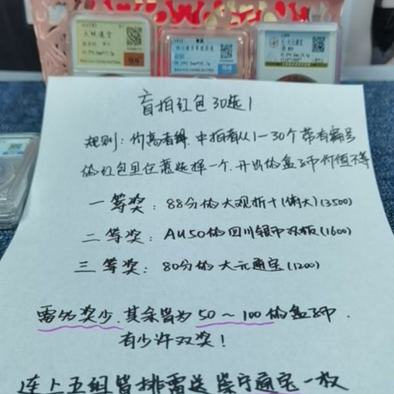 盲拍红包30选1
规则：价高者得，中拍者从1—30个带有编号
的红包里任意选择一个，开出的盒子币价值不等
一等奖：88分的大观折十(3500)
二等奖：AU50的四川银币双板(1600)
三等奖：80分的大元通宝(1200)
雷多奖少，其余皆为50～100的盒子币．
有少许双奖！
连上五组皆排雷送崇宁通宝一枚